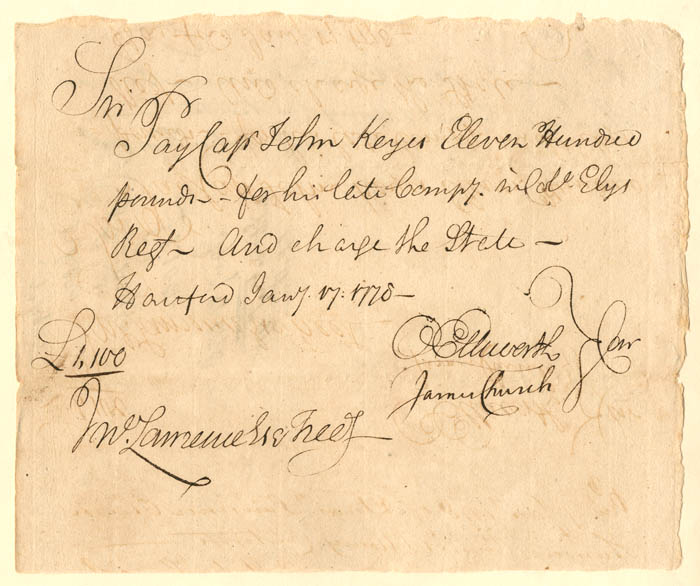 Sir
Pay Capt John Keyes Eleven Hundred
pounds – for his late Compy. in Col. Elys
Regt – And charge the State –
Hartford Jany. 17: 1778 –
£1,100
OEllsworth
James Church
Jno. Lawrence Esqr Treasr